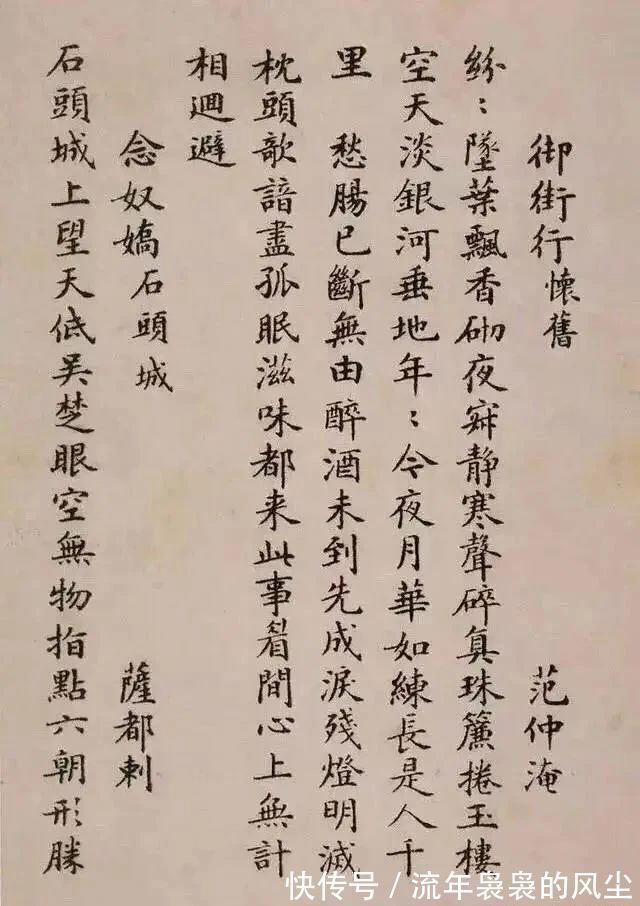 御街行 懷舊 范仲淹
紛：墜葉飄香砌夜寂静寒聲碎真珠簾捲玉樓
空天淡銀河垂地年：今夜月華如練長是人千
里 愁腸已斷無由醉酒未到先成淚殘燈明滅
枕頭欹諳盡孤眠滋味都来此事眉間心上無計
相迴避
念奴嬌 石頭城 薩都剌
石頭城上望天低吳楚眼空無物指點六朝形勝
快传号/流年袅袅的风尘